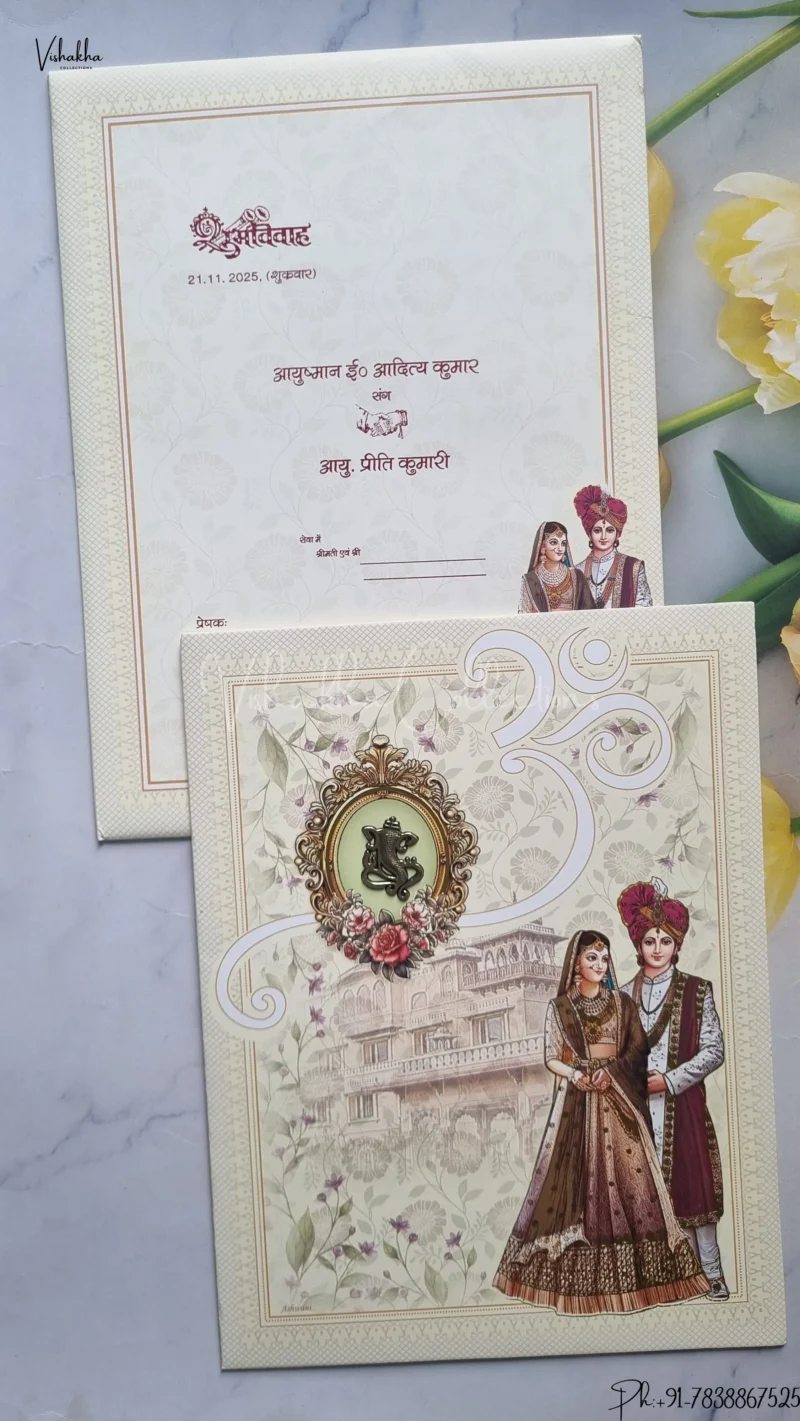 Vishakha
COLLECTIONS
शुभविवाह
21.11. 2025, (शुक्रवार)
आयुष्मान ई० आदित्य कुमार
संग
आयु. प्रीति कुमारी
सेवा में
श्रीमती एवं श्री
प्रेषक:
Vishakha Collections
ॐ
Ashwani
Ph:+91-7838867525